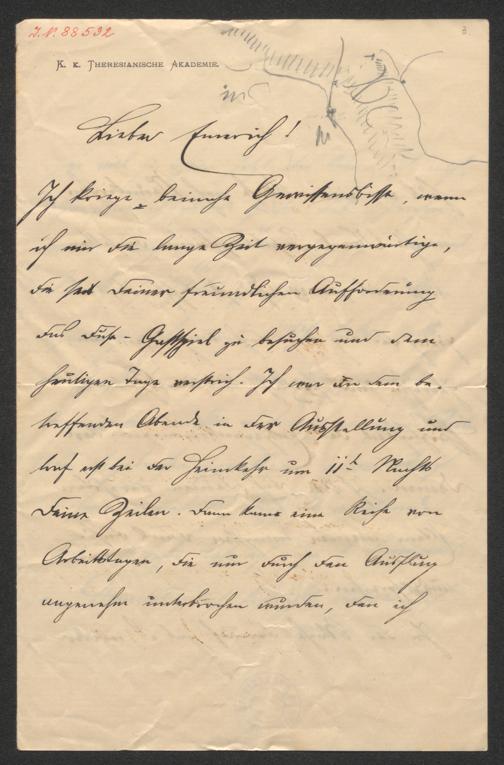 I.N. 88532
3
K. K. THERESIANISCHE AKADEMIE.
Lieber Emerich!
Ich kriege beinahe Gewissensbisse, wenn
ich mir die lange Zeit vergegenwärtige,
die seit Deiner freundlichen Aufforderung
das Duse-Gastspiel zu besuchen und dem
heutigen Tage verstrich. Ich war an dem be-
treffenden Abende in der Ausstellung und
traf erst bei der Heimkehr um 11h Nachts
Deine Zeilen. Dann kam eine Reihe von
Arbeitstagen, die nur durch den Ausflug
angenehm unterbrochen wurden, den ich